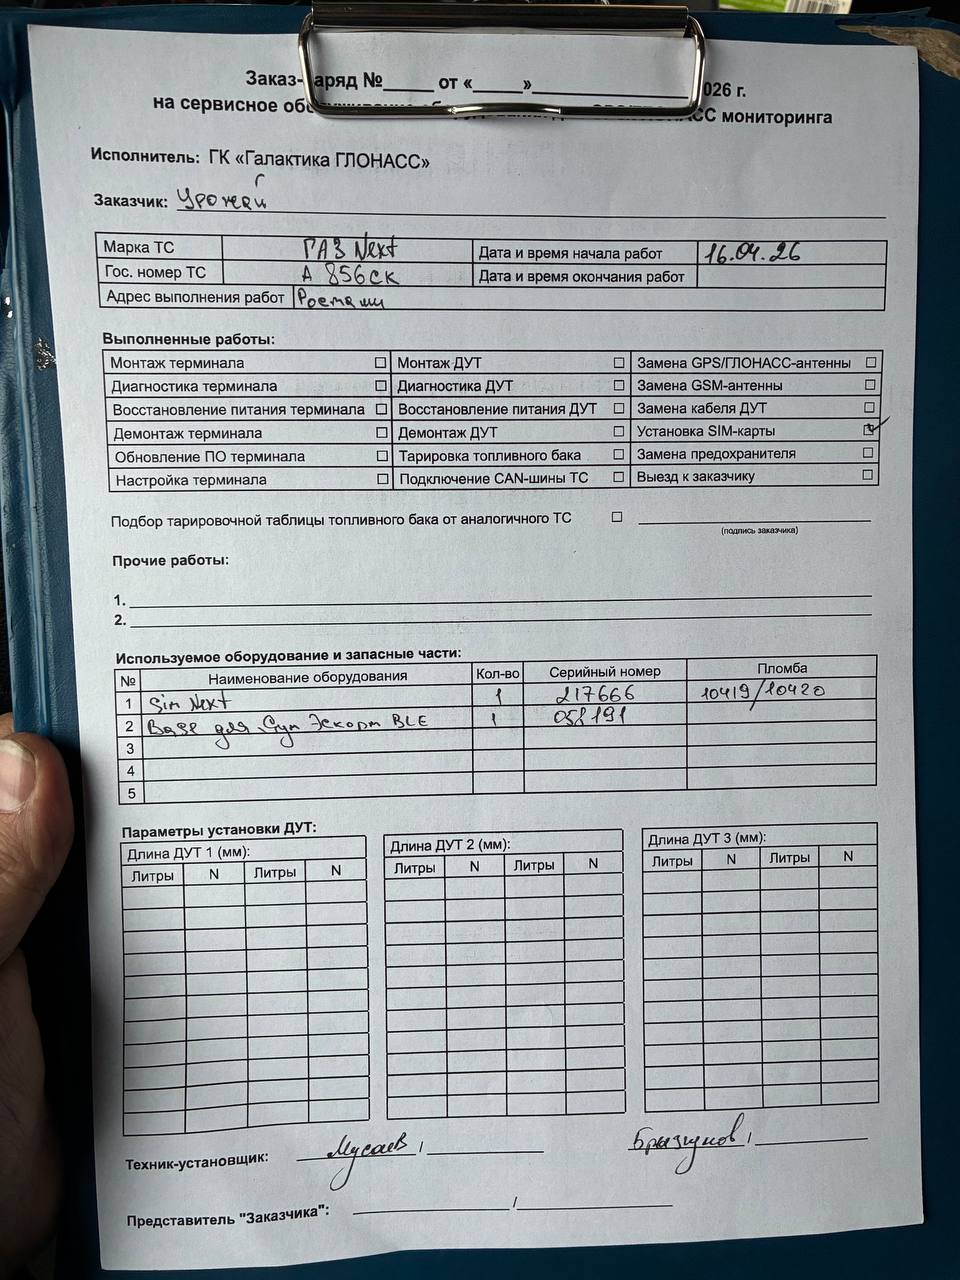 Заказ-наряд №_____ от «_____»_______________ 026 г.
на сервисное мониторинга
Исполнитель: ГК «Галактика ГЛОНАСС»
Заказчик: Урожай
Марка ТС ГАЗ Next Дата и время начала работ 16.04.26
Гос. номер ТС А 856СК Дата и время окончания работ
Адрес выполнения работ
Выполненные работы:
Монтаж терминала ☐ Монтаж ДУТ ☐ Замена GPS/ГЛОНАСС-антенны ☐
Диагностика терминала ☐ Диагностика ДУТ ☐ Замена GSM-антенны ☐
Восстановление питания терминала ☐ Восстановление питания ДУТ ☐ Замена кабеля ДУТ ☐
Демонтаж терминала ☐ Демонтаж ДУТ ☐ Установка SIM-карты ☑
Обновление ПО терминала ☐ Тарировка топливного бака ☐ Замена предохранителя ☐
Настройка терминала ☐ Подключение CAN-шины ТС ☐ Выезд к заказчику ☐
Подбор тарировочной таблицы топливного бака от аналогичного ТС ☐
(подпись заказчика)
Прочие работы:
1.
2.
Используемое оборудование и запасные части:
№ Наименование оборудования Кол-во Серийный номер Пломба
1 Sim Next 1 217666 10419/10420
2 Base для Дут Эскорт BLE 1 058191
3
4
5
Параметры установки ДУТ:
Длина ДУТ 1 (мм): Длина ДУТ 2 (мм): Длина ДУТ 3 (мм):
Литры N Литры N Литры N Литры N Литры N Литры N
Техник-установщик: Мусаев / Брызгунов /
Представитель "Заказчика": /